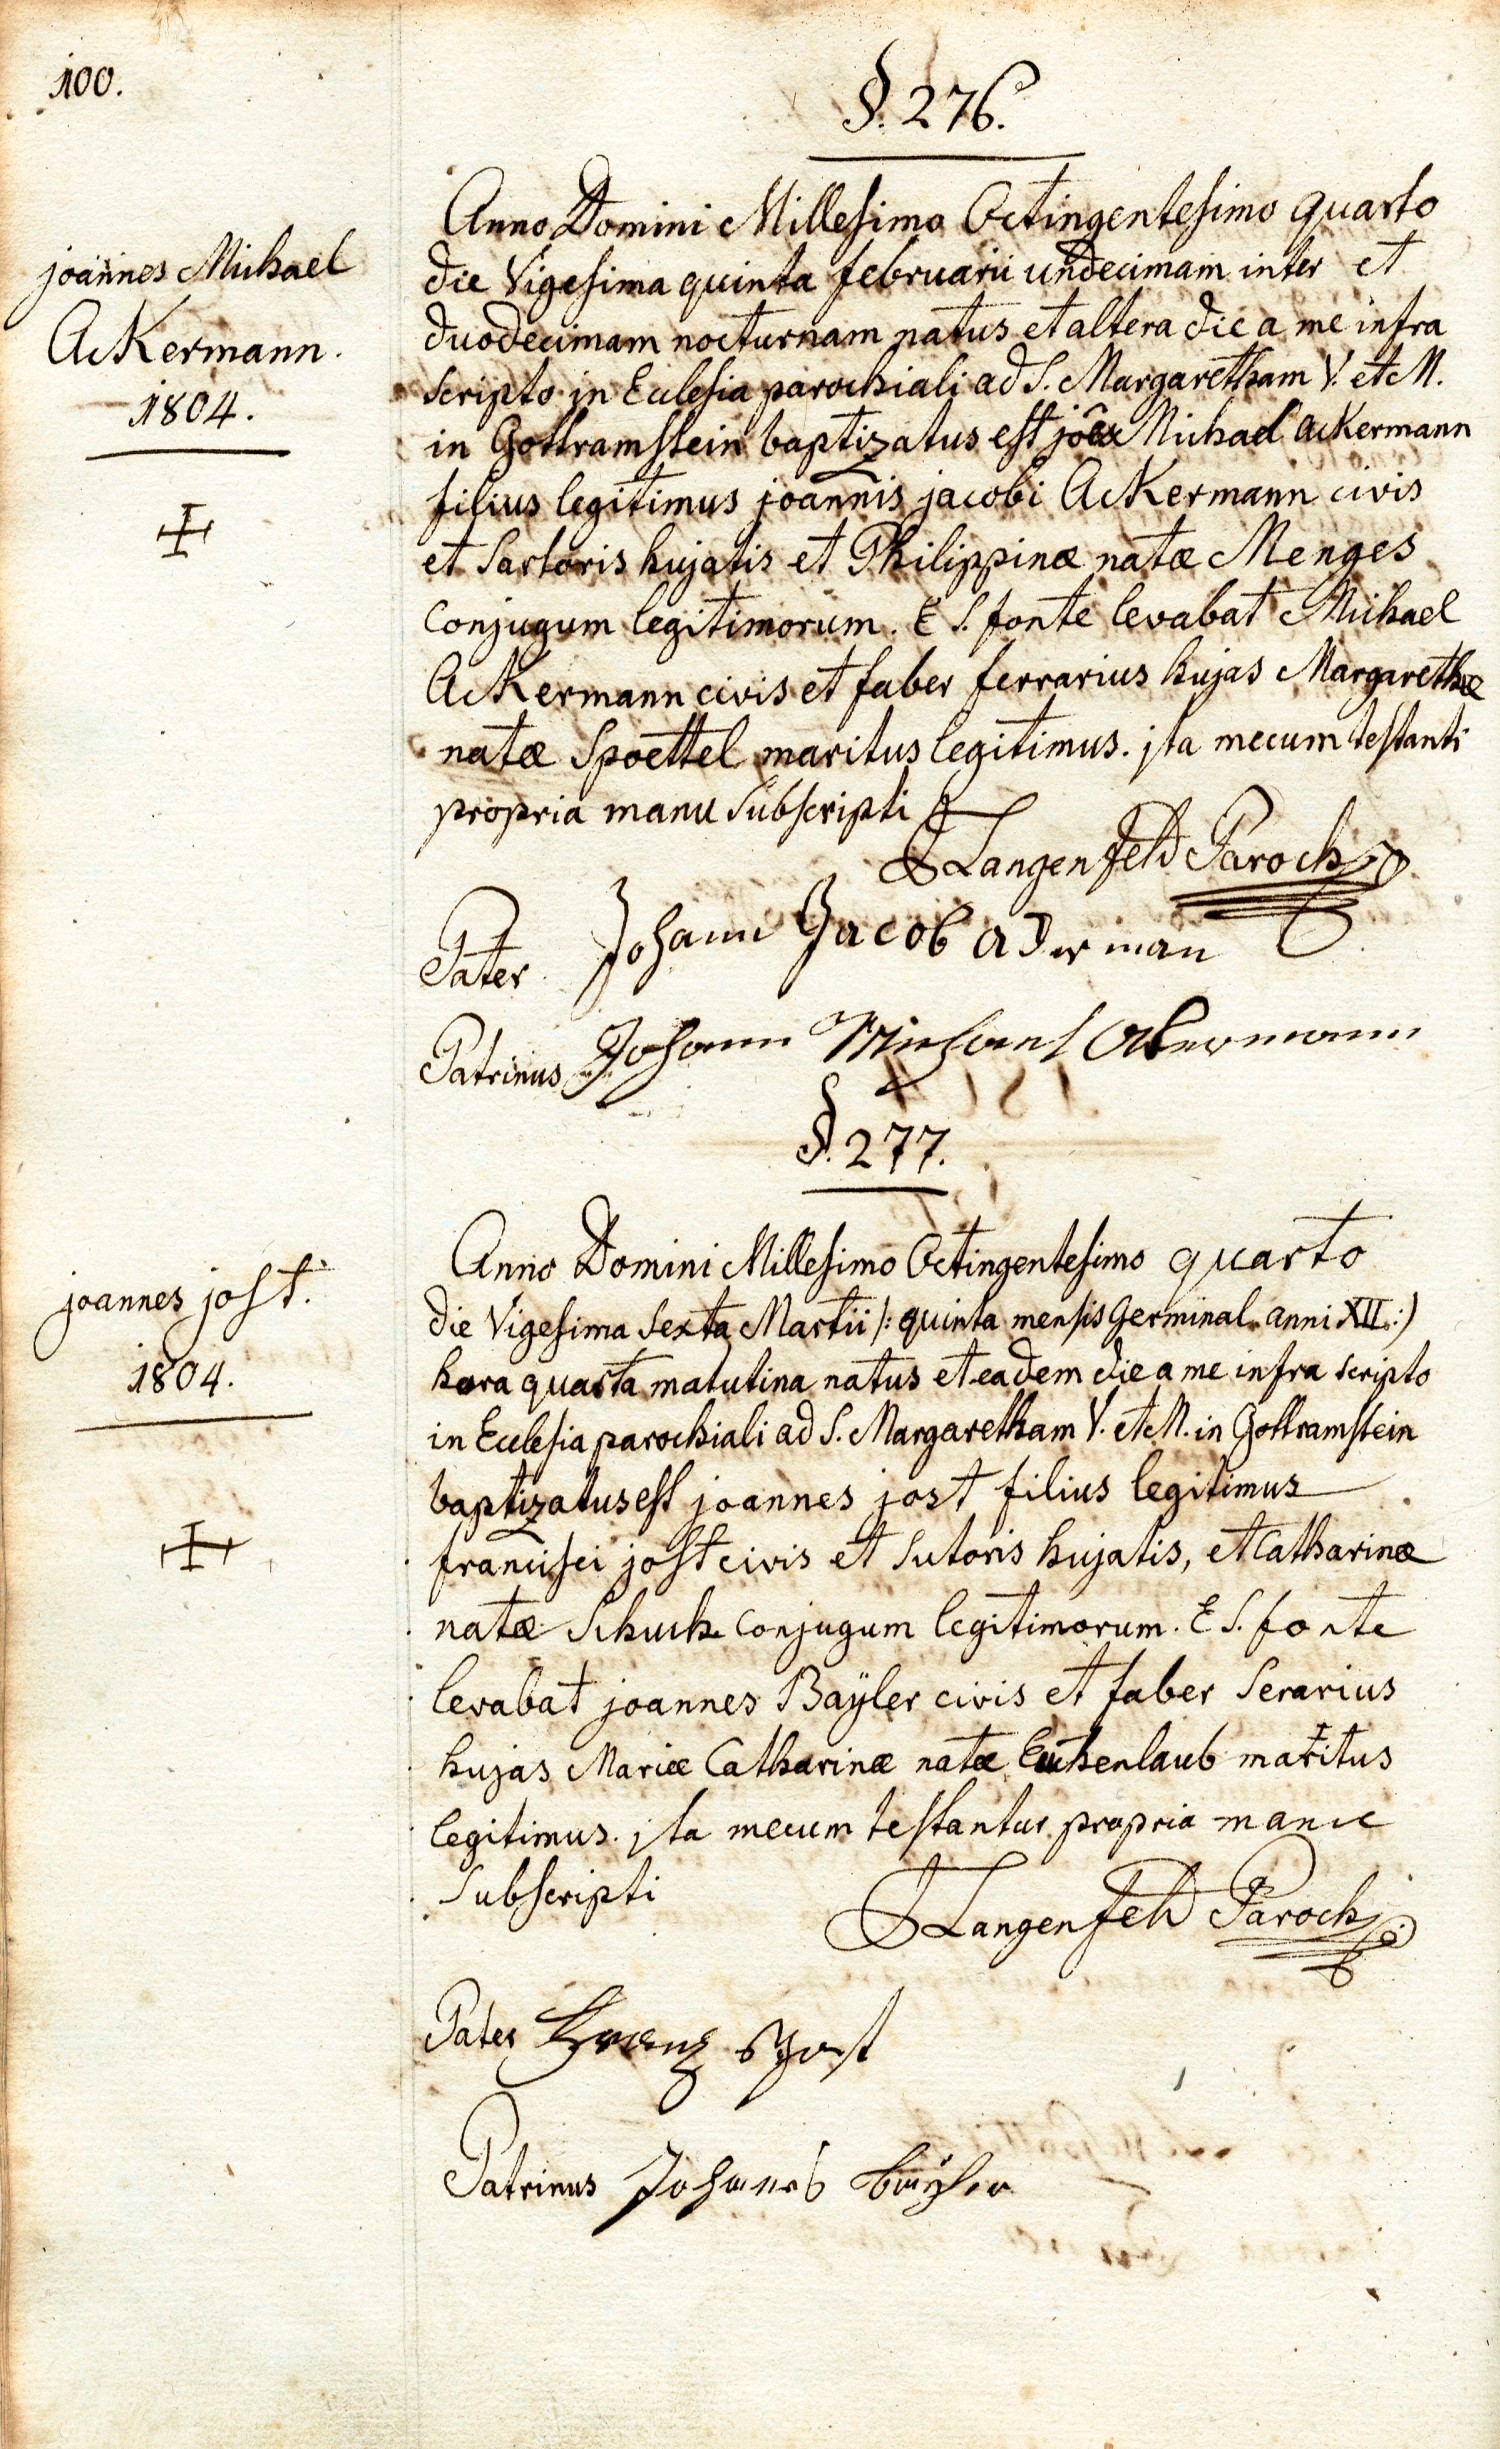 100.
§. 276.
joannes Michael
Ackermann.
1804.
Anno Domini Millesimo Octingentesimo quarto
die Vigesima quinta februarii undecimam inter et
duodecimam nocturnam natus et altera die a me infra
scripto in Ecclesia parochiali ad S. Margaretham V. et M.
in Gottramstein baptizatus est jôes Michael Ackermann
filius legitimus joannis jacobi Ackermann civis
et Sartoris hujatis et Philippinæ natæ Menges
Conjugum legitimorum. E S. fonte levabat Michael
Ackermann civis et faber ferrarius hujas Margarethæ
natæ Spoettel maritus legitimus. jta mecum testanti
propria manu subscripti
Langenfeld Paroch
Pater Johann Jacob ackerman
Patrinus Johann Michael Akermann
§. 277.
joannes jost.
1804.
Anno Domini Millesimo Octingentesimo quarto
die Vigesima Sexta Martii /: quinta mensis Germinal anni XII :/
hora quarta matutina natus et eadem die a me infra scripto
in Ecclesia parochiali ad S. Margaretham V. et M. in Gottramstein
baptizatus est joannes jost filius legitimus
francisci jost civis et Sutoris hujatis, et Catharinæ
natæ Schuch Conjugum legitimorum. E S. fonte
levabat joannes Baÿler civis et faber Serarius
hujas Mariæ Catharinæ natæ Euchenlaub maritus
legitimus. jta mecum testantur propria manu
Subscripti
Langenfeld Paroch
Pater Franz Jost
Patrinus Johannes baÿler